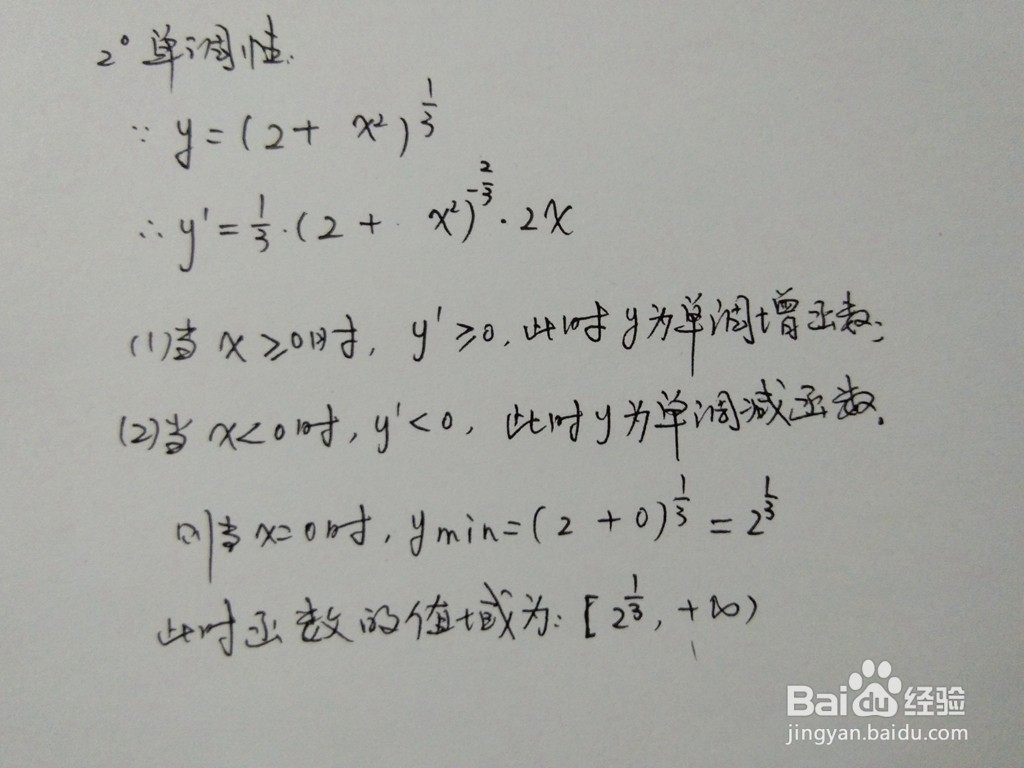 2° 单调性.
∵ y = (2 + x²)^{1/3}
∴ y' = 1/3 · (2 + x²)^{-2/3} · 2x
(1) 当 x ≥ 0 时, y' ≥ 0, 此时 y 为单调增函数;
(2) 当 x < 0 时, y' < 0, 此时 y 为单调减函数.
则当 x = 0 时, ymin = (2 + 0)^{1/3} = 2^{1/3}
此时函数的值域为: [2^{1/3}, +∞)
Baidu 经验
jingyan.baidu.com